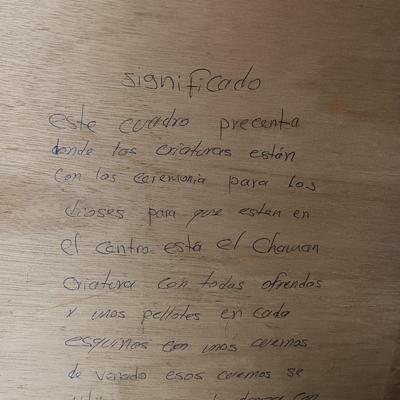 significado
este cuadro precenta
donde las criaturas están
con las ceremonia para los
dioses para que esten en
el centro está el Chaman
criatura con todas ofrendas
y unos pellotes en cada
esquinas con unos cuernos
de venado esos cuernos se